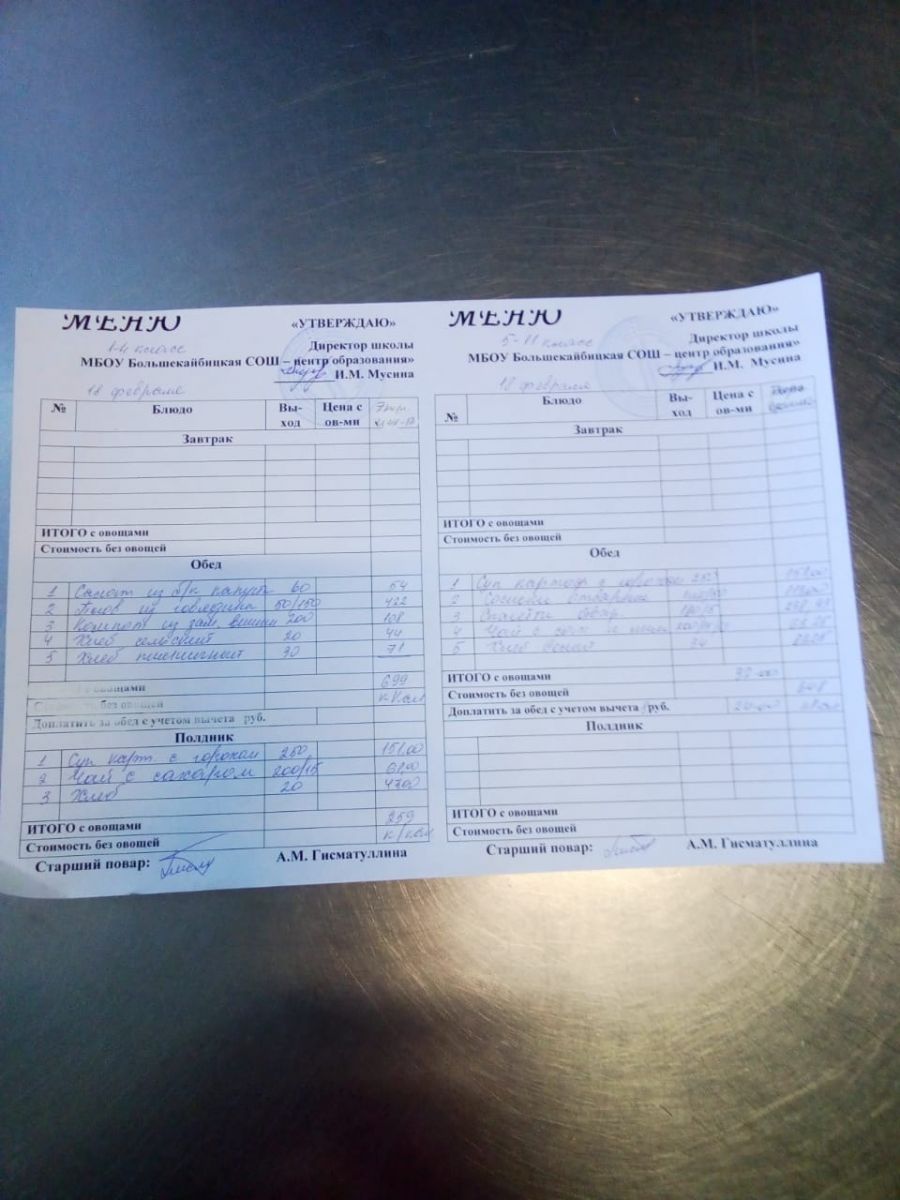 МЕНЮ
«УТВЕРЖДАЮ»
1-4 класс
Директор школы
МБОУ Большекайбицкая СОШ – центр образования»
И.М. Мусина
18 февраля
№ Блюдо Вы-ход Цена с ов-ми
Завтрак
ИТОГО с овощами
Стоимость без овощей
Обед
1 Салат из б/к капусты 60 54
2 Плов из говядины 50/150 422
3 Компот из зам. вишни 200 108
4 Хлеб сельский 20 44
5 Хлеб пшеничный 30 71
с овощами 699
без овощей к/кал
Доплатить за обед с учетом вычета руб.
Полдник
1 Суп карт. с горохом 250 151,00
2 Чай с сахаром 200/15 61,00
3 Хлеб 20 47,00
ИТОГО с овощами 259
Стоимость без овощей к/кал
Старший повар: А.М. Гисматуллина
МЕНЮ
«УТВЕРЖДАЮ»
5-11 класс
Директор школы
МБОУ Большекайбицкая СОШ – центр образования»
И.М. Мусина
18 февраля
№ Блюдо Вы-ход Цена с ов-ми
Завтрак
ИТОГО с овощами
Стоимость без овощей
Обед
1 Суп картоф с горохом 250 151,00
2 Сосиски отварные
3 Спагетти отвар
4 Чай с
5 Хлеб
ИТОГО с овощами
Стоимость без овощей
Доплатить за обед с учетом вычета руб.
Полдник
ИТОГО с овощами
Стоимость без овощей
Старший повар: А.М. Гисматуллина